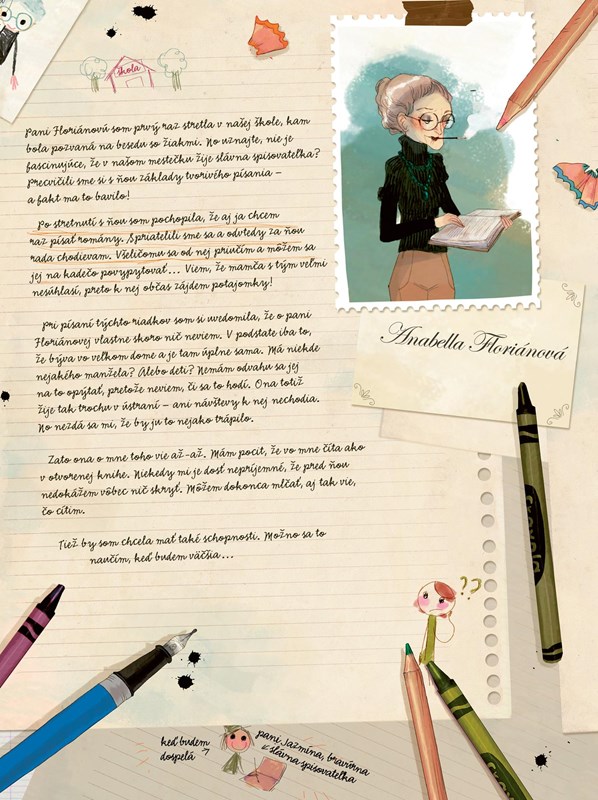 škola
Pani Floriánovú som prvý raz stretla v našej škole, kam
bola pozvaná na besedu so žiakmi. No uznajte, nie je
fascinujúce, že v našom mestečku žije slávna spisovateľka?
Precvičili sme si s ňou základy tvorivého písania –
a fakt ma to bavilo!
Po stretnutí s ňou som pochopila, že aj ja chcem
raz písať romány. Spriatelili sme sa a odvtedy za ňou
rada chodievam. Všeličomu sa od nej priučím a môžem sa
jej na kadečo povypytovať... Viem, že mamča s tým veľmi
nesúhlasí, preto k nej občas zájdem potajomky!
Pri písaní týchto riadkov som si uvedomila, že o pani
Floriánovej vlastne skoro nič neviem. V podstate iba to,
že býva vo veľkom dome a je tam úplne sama. Má niekde
nejakého manžela? Alebo deti? Nemám odvahu sa jej
na to opýtať, pretože neviem, či sa to hodí. Ona totiž
žije tak trochu v ústraní – ani návštevy k nej nechodia.
No nezdá sa mi, že by ju to nejako trápilo.
Zato ona o mne toho vie až-až. Mám pocit, že vo mne číta ako
v otvorenej knihe. Niekedy mi je dosť nepríjemné, že pred ňou
nedokážem vôbec nič skryť. Môžem dokonca mlčať, aj tak vie,
čo cítim.
Tiež by som chcela mať také schopnosti. Možno sa to
naučím, keď budem väčšia...
Anabella Floriánová
??
keď budem
dospelá
pani Jazmína, bravúrna
slávna spisovateľka